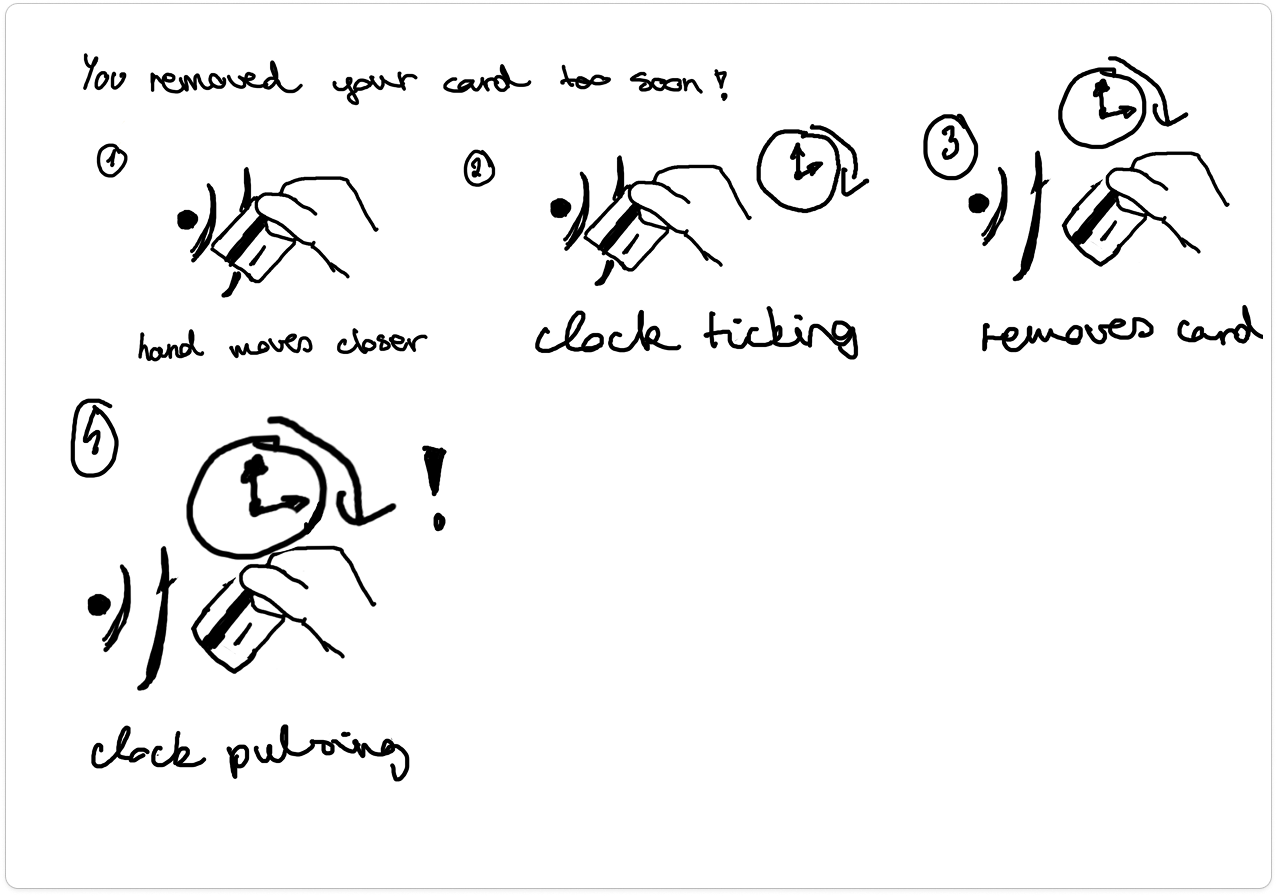 You removed your card too soon!
1
2
3
hand moves closer
clock ticking
removes card
!
clock pulsing